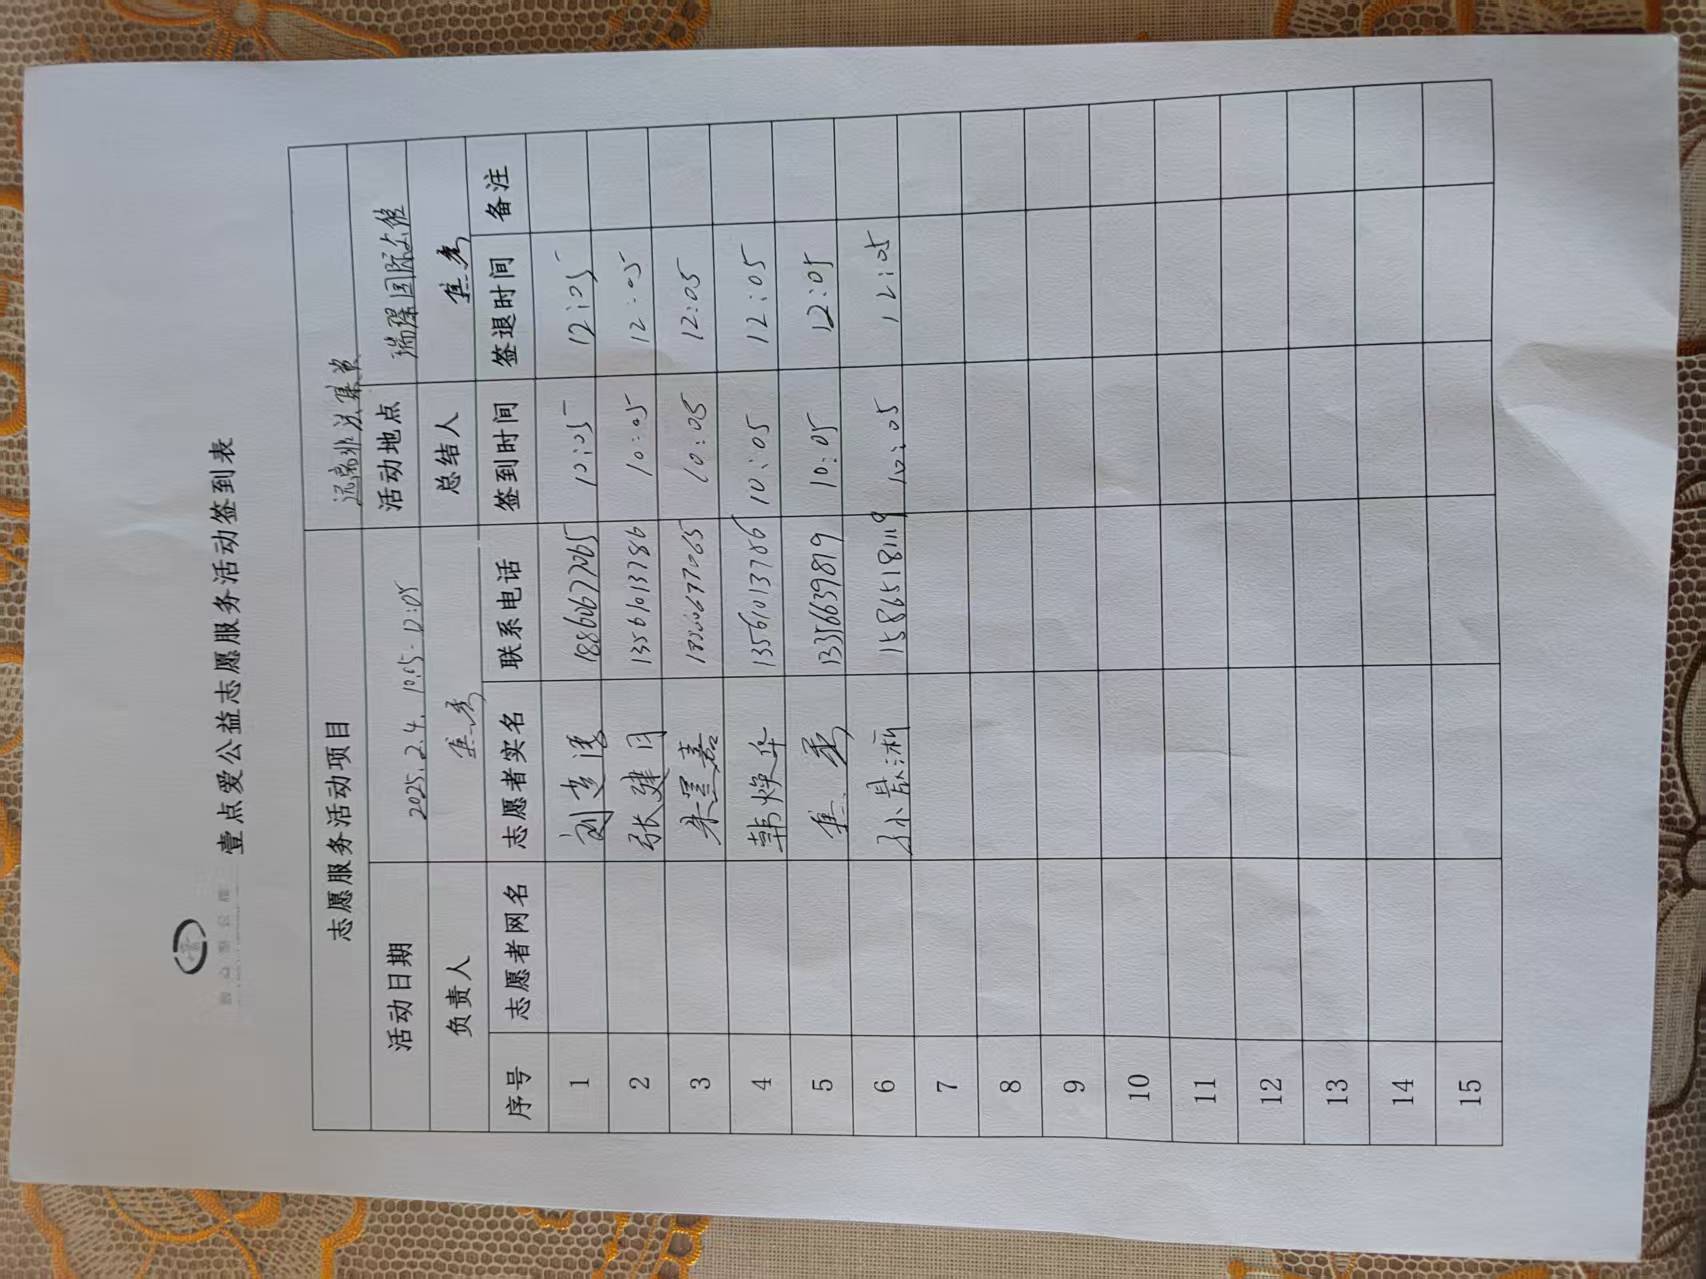 壹点爱公益志愿服务活动签到表
志愿服务活动项目 远离非法集资
活动日期 2025.2.4. 10:05-12:05 活动地点 瑞璟国际公馆
负责人 焦秀 总结人 焦秀
序号 志愿者网名 志愿者实名 联系电话 签到时间 签退时间 备注
1 18860677065 10:05 12:05
2 张建月 13561013786 10:05 12:05
3 10:05 12:05
4 韩焕华 13561013786 10:05 12:05
5 焦秀 13356639819 10:05 12:05
6 15865181119 10:05 12:05
7
8
9
10
11
12
13
14
15